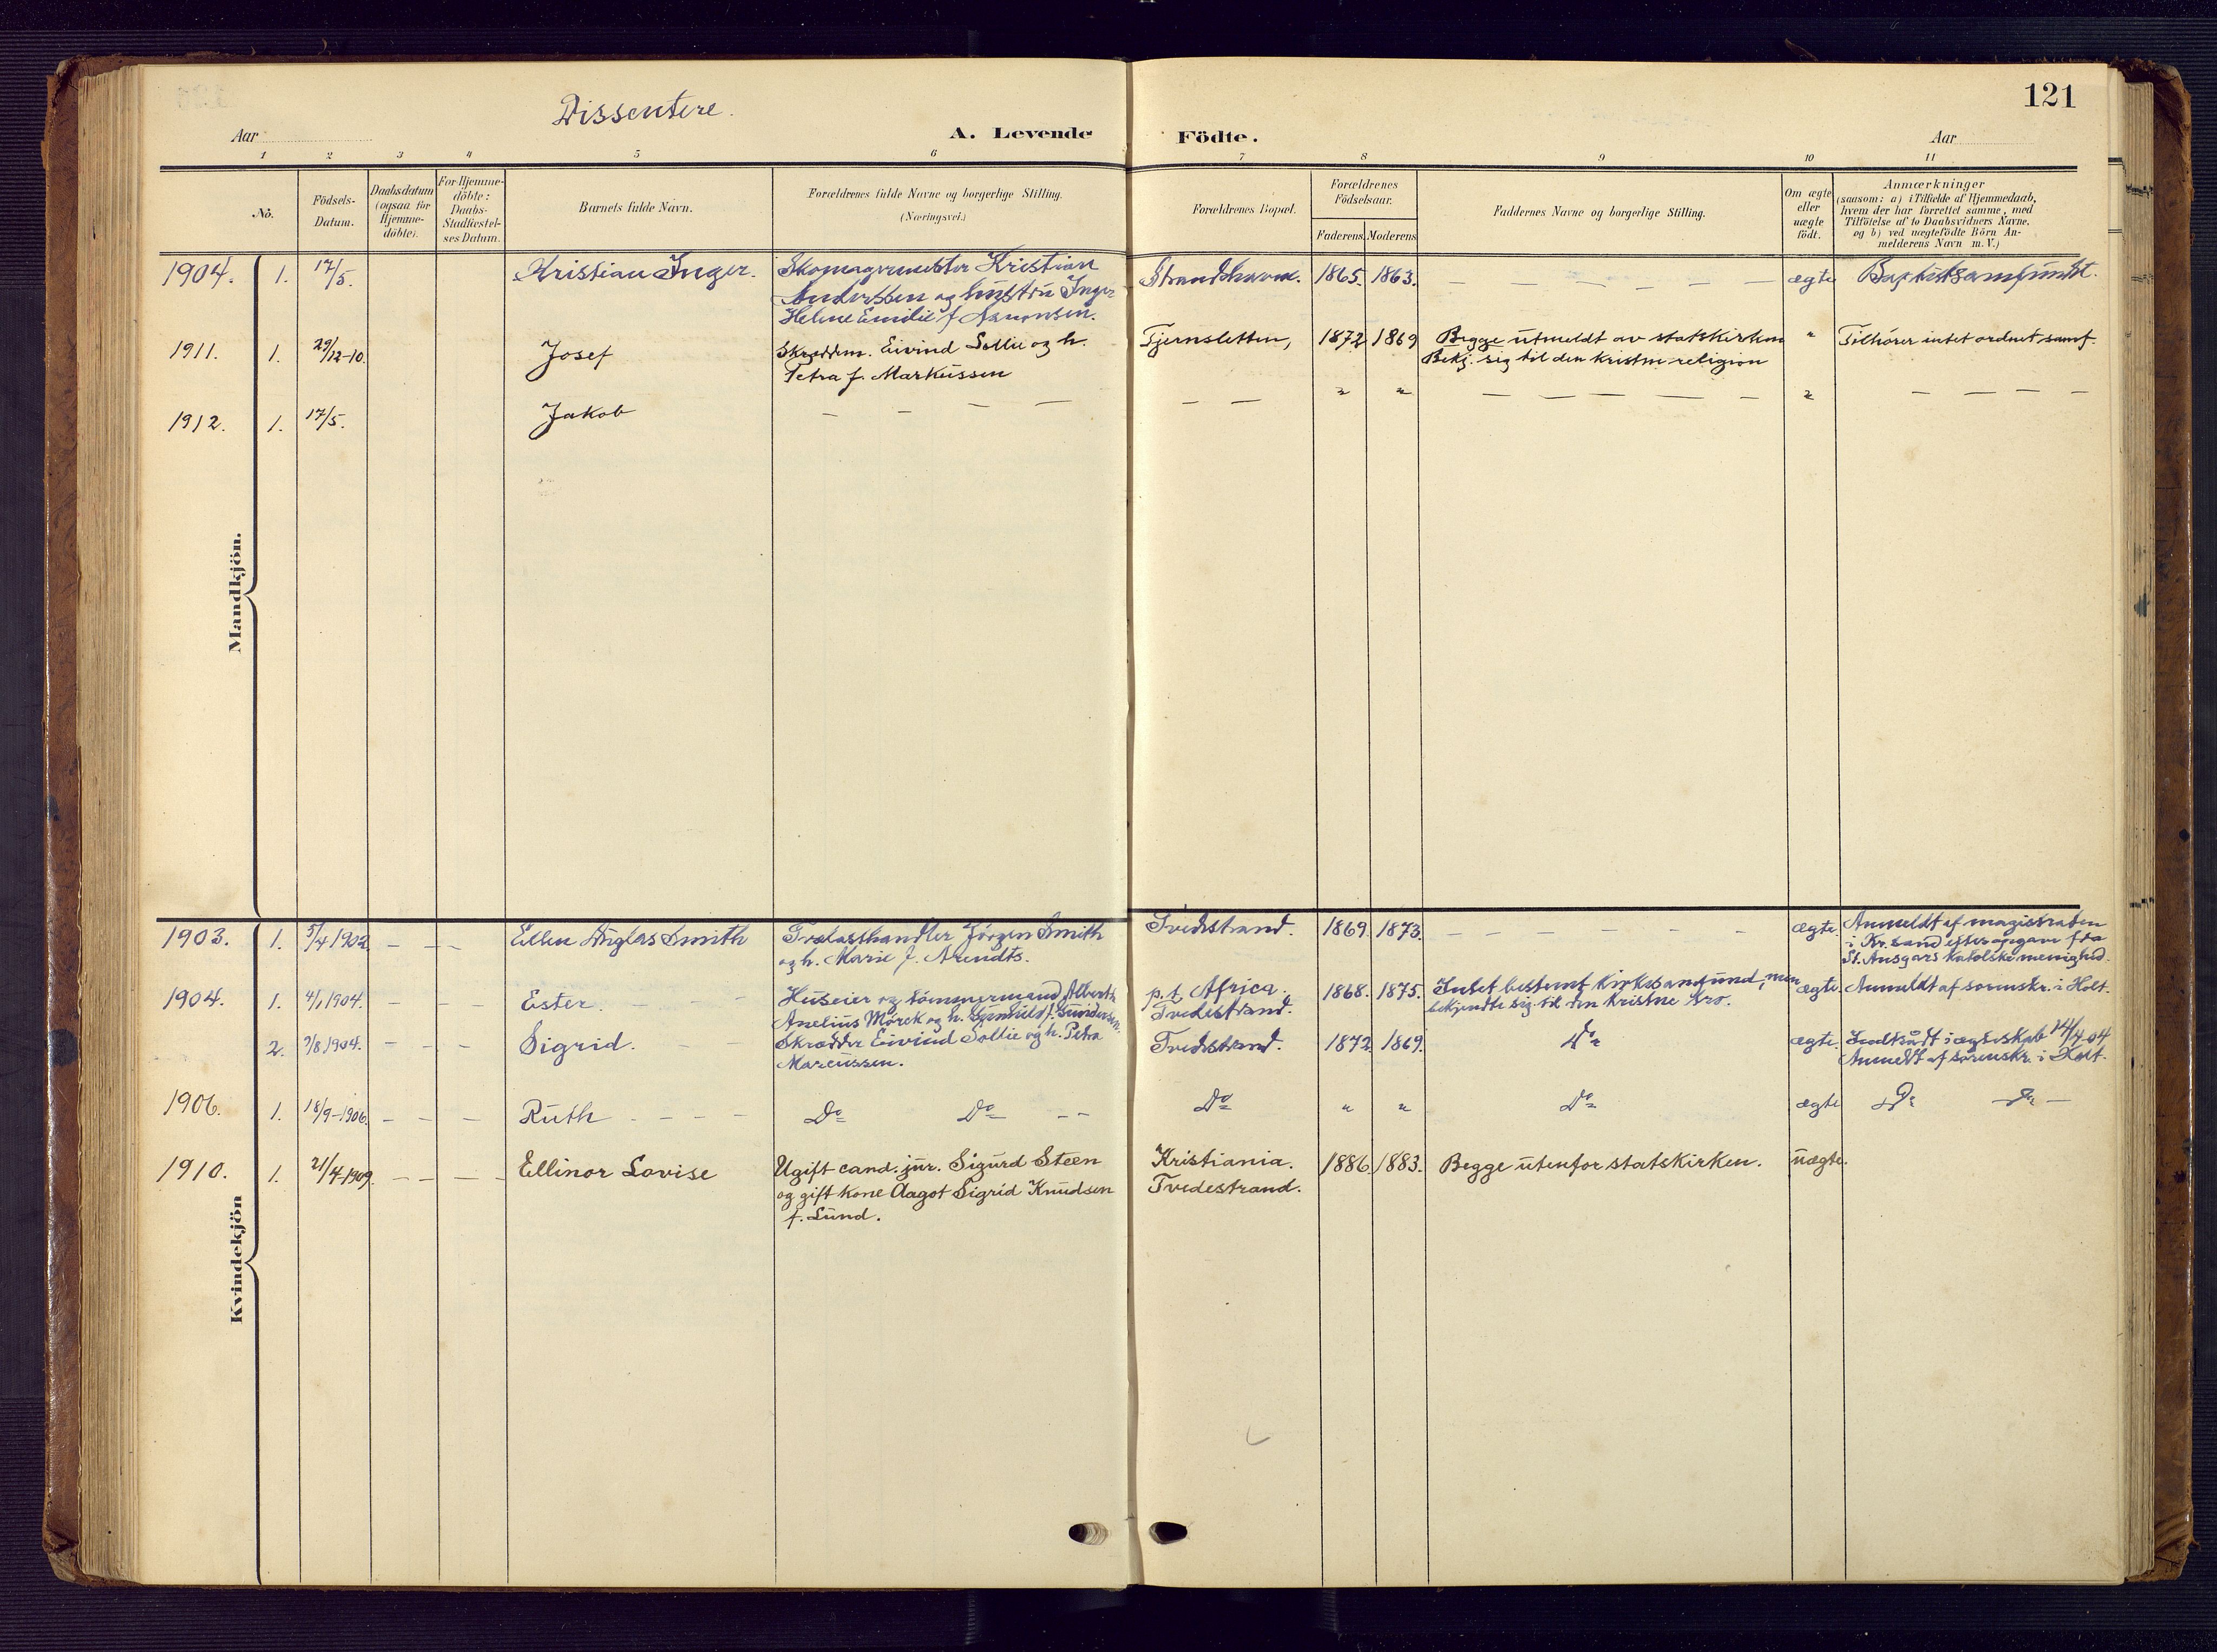 121
Dissentere.
Aar
A. Levende Födte.
Aar
1 2 3 4 5 6 7 8 9 10 11
No.
Födsels-
Datum.
Daabsdatum
(ogsaa for
Hjemme-
döbte).
For Hjemme-
döbte:
Daabs-
Stadfæstel-
ses Datum.
Barnets fulde Navn.
Forældrenes fulde Navne og borgerlige Stilling.
(Næringsvei.)
Forældrenes Bopæl.
Forældrenes
Födselsaar.
Faderens. Moderens
Faddernes Navne og borgerlige Stilling.
Om ægte
eller
uægte
födt.
Anmærkninger
(saasom: a) i Tilfælde af Hjemmedaab,
hvem der har forrettet samme, med
Tilföielse af to Daabsvidners Navne,
og b) ved uægtefödte Börn An-
melderens Navn m. V.)
Mandkjön.
1904. 1. 17/5. Kristian Inger. Skomagermester Kristian
Andersen og hustru Inger
Helene Emilie f. Aanonsen.
Strandhaven. 1865. 1863. — — — — — — ægte Baptistsamfundet.
1911. 1. 29/12-10. Josef Skreddern. Eivind Sollie og h.
Petra f. Markussen
Tjernsletten, 1872 1869 Begge utmeldt av statskirken
Bekj. sig til den kristne religion
" Tilhører intet ordnet samf.
1912. 1. 17/5. Jakob — — — — — — " " — — — — — — " — — — —
Kvindekjön
1903. 1. 5/4 1902 — — — Ellen Anglas Smith Trælasthandler Jörgen Smith
og h. Marie f. Arendts.
Tvedestrand. 1869. 1873. — — — — — — ægte. Anmeldt af magistraten
i Kr.sand efter opgave fra
St. Ansgars katolske menighed.
1904. 1. 4/1 1904. — — — Ester. — — — Huseier og tömmermand Albert
Anelius Mörck og h. Gunhild f. Gundersen.
p.t. Africa.
Tvedestrand.
1868. 1875. Intet bestemt kirkesamfund, men
bekjendte sig til den kristne tro.
ægte. Anmeldt af sorenskr. i Holt.
2. 9/8 1904. — — — Sigrid. — — Skrædder Eivind Sollie og h. Petra
Marcussen.
Tvedestrand. 1872 1869. Do ægte. Indtraadt i ægteskab 14/4 04
Anmeldt af sorenskr. i Holt.
1906. 1. 18/9-1906. — — — Ruth — — — Do Do — — Do " " Do ægte Do Do —
1910. 1. 21/4-1909. — — — — Ellinor Lovise Ugift cand. jur. Sigurd Steen
og gift kone Aagot Sigrid Knudsen
f. Lund.
Kristiania.
Tvedestrand.
1886. 1883. Begge utenfor statskirken. uægte.